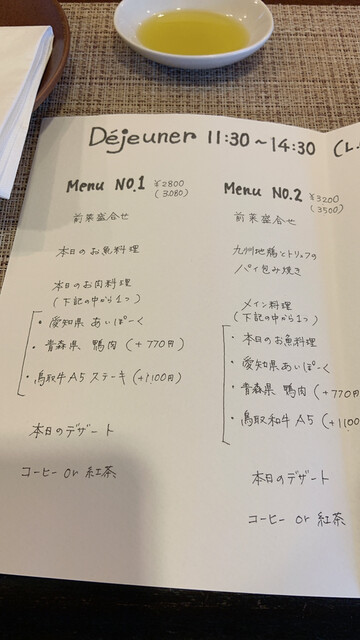 Déjeuner 11:30～14:30 (L.
Menu NO.1 ¥2800
(3080)
前菜盛合せ
本日のお魚料理
本日のお肉料理
(下記の中から1つ)
・愛知県 あいぽーく
・青森県 鴨肉 (+770円)
・鳥取牛A5ステーキ (+1,100円)
本日のデザート
コーヒー or 紅茶
Menu NO.2 ¥3200
(3500)
前菜盛合せ
九州地鶏とトリュフの
パイ包み焼き
メイン料理
(下記の中から1つ)
・本日のお魚料理
・愛知県あいぽーく
・青森県 鴨肉 (+770円
・鳥取和牛 A5 (+1100
本日のデザート
コーヒー or 紅茶